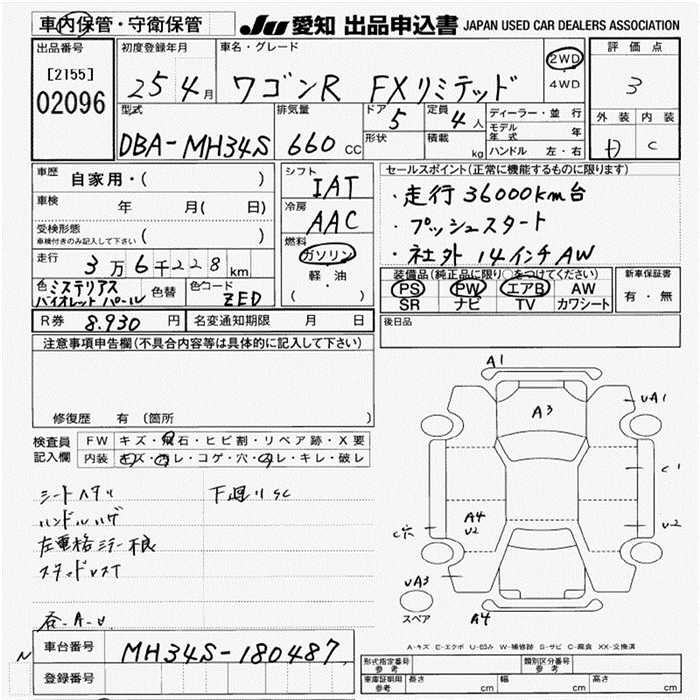 車内保管・守衛保管
JU 愛知 出品申込書 JAPAN USED CAR DEALERS ASSOCIATION
出品番号
[2155]
02096
初度登録年月
25 4月
車名・グレード
ワゴンR FXリミテッド
2WD
・
4WD
評価点
3
外装 内装
D C
型式
DBA-MH34S
排気量
660 CC
ドア
5
形状
定員
4人
積載
kg
ディーラー・並行
モデル年式 年
ハンドル 左・右
車歴
自家用・( )
車検
年 月( 日)
受検形態
車検付きのみ記入して下さい ( )
走行
3万6千228km
色 ミステリアスバイオレットパール
色替
色コード
ZED
シフト
IAT
冷房
AAC
燃料
ガソリン
・
軽油
( ・ )
セールスポイント(正常に機能するものに限ります)
・走行36000km台
・プッシュスタート
・社外 14インチAW
装備品(純正品に限り○をつけてください)
PS PW エアB AW
SR ナビ TV カワシート
新車保証書
有・無
R券 8.930円
名変通知期限 月 日
後日品
注意事項申告欄(不具合内容等は具体的に記入して下さい)
修復歴 有(箇所 )
検査員記入欄
FW キズ・飛石・ヒビ割・リペア跡・X要
内装 キズ・汚レ・コゲ・穴・ヌレ・キレ・破レ
シートヘタリ
下廻りSC
ハンドルハゲ
左電格ミラー不良
スタッドレスT
各-A-U
A1
A3
UA1
C1
A4
U2
U2
C穴
UA3
A4
スペア
A-キズ E-エクボ U-凹み W-補修跡 S-サビ C-腐食 XX-交換済
車台番号
MH34S-180487
登録番号
N
形式指定番号
参考
類別区分番号
参考
車庫証明用
参考
長さ cm 幅 cm 高さ cm